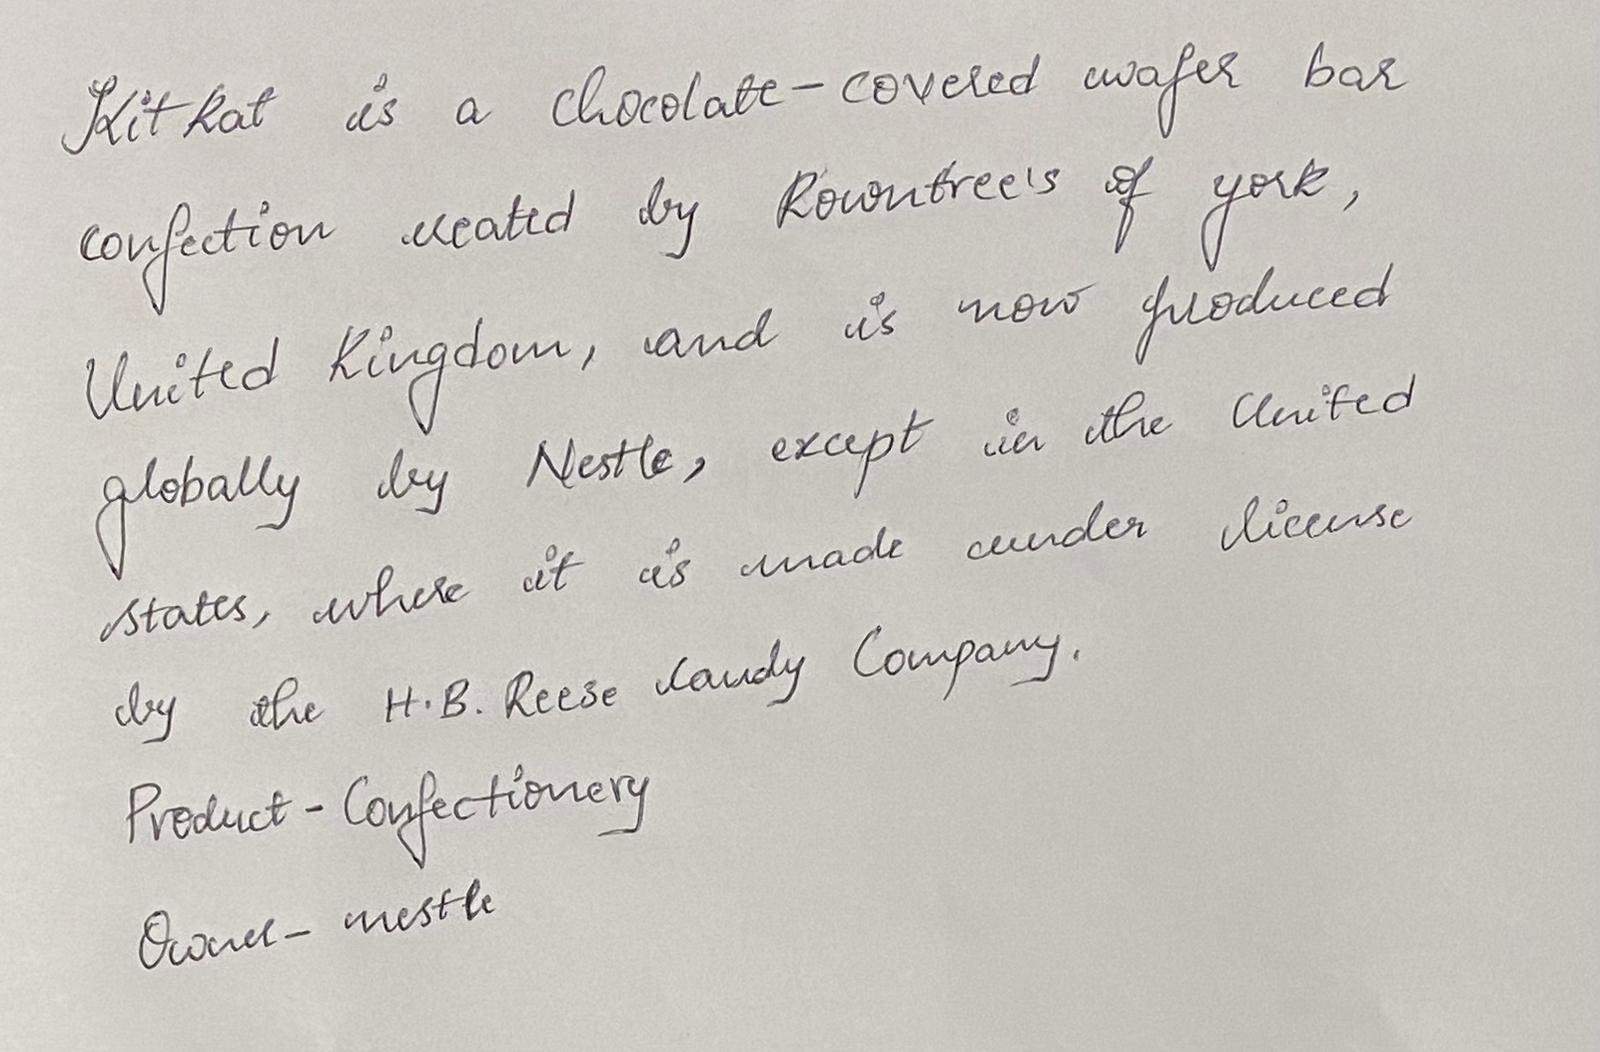 Kit kat is a chocolate-covered wafer bar
confection created by Rowntree's of york,
United Kingdom, and is now produced
globally by Nestle, except in the United
states, where it is made under license
by the H.B. Reese Candy Company.
Product - Confectionery
Owner - nestle